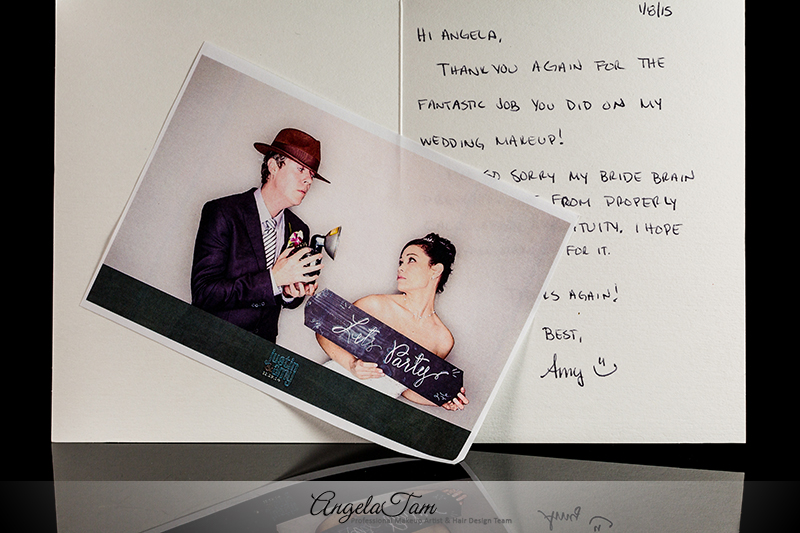 1/8/15
HI ANGELA,
THANK YOU AGAIN FOR THE
FANTASTIC JOB YOU DID ON MY
WEDDING MAKEUP!
SO SORRY MY BRIDE BRAIN
FROM PROPERLY
I HOPE
FOR IT.
AGAIN!
BEST,
Amy
Let's Party
AngelaTam
Professional Makeup Artist & Hair Design Team